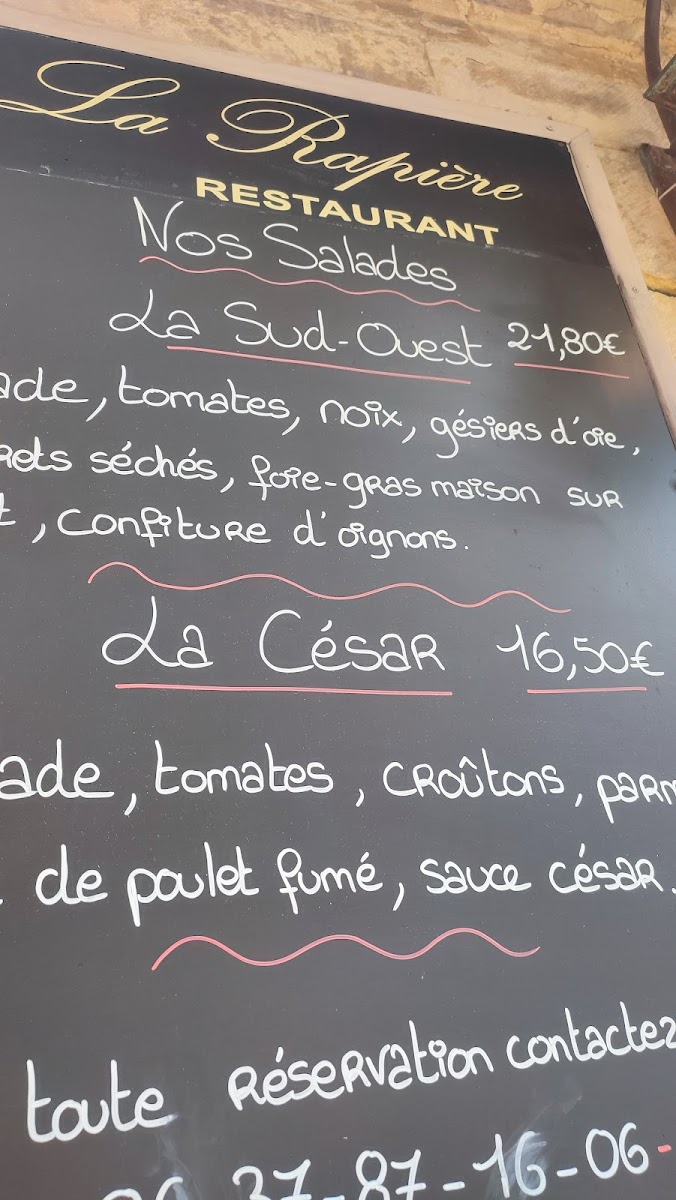 La Rapière
RESTAURANT
Nos Salades
La Sud-Ouest 21,80€
ade, tomates, noix, gésiers d'oie,
rets séchés, foie-gras maison sur
t, confiture d'oignons.
La César 16,50€
ade, tomates, croûtons, parm
de poulet fumé, sauce césar.
toute réservation contactez
06-37-87-16-06-